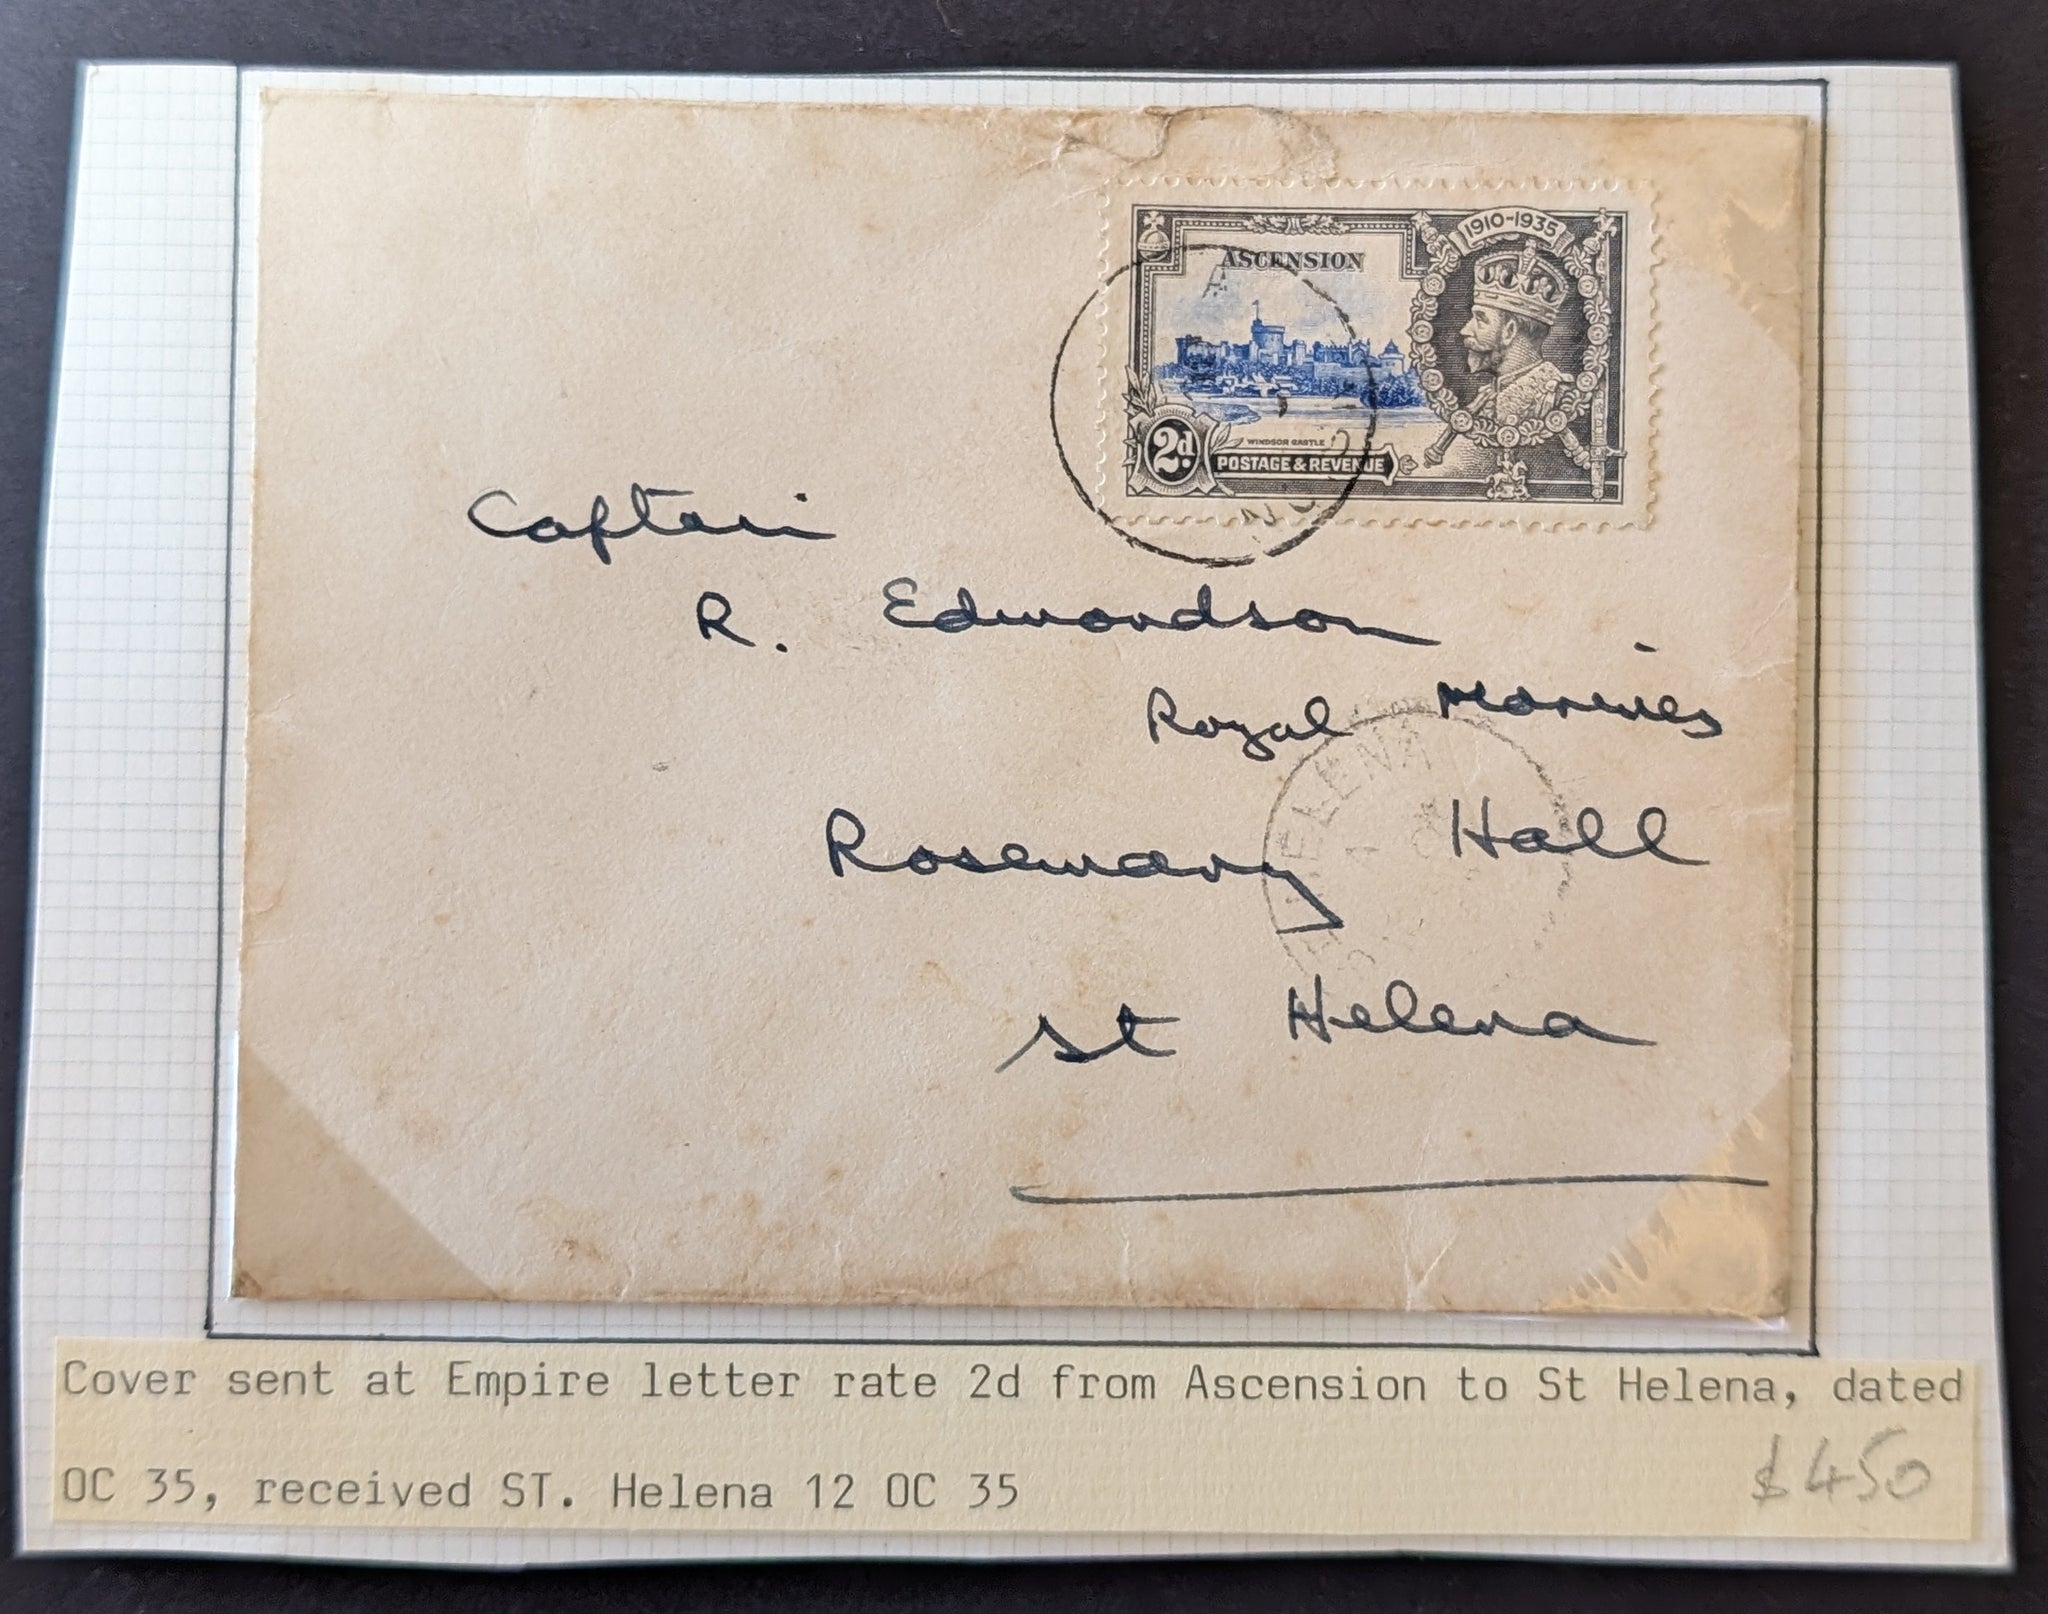 1910-1935
ASCENSION
WINDSOR CASTLE
2d.
POSTAGE & REVENUE
Captain
R. Edmondson
Royal Marines
HELENA
Rosemary Hall
St Helena
Cover sent at Empire letter rate 2d from Ascension to St Helena, dated
OC 35, received ST. Helena 12 OC 35
$450